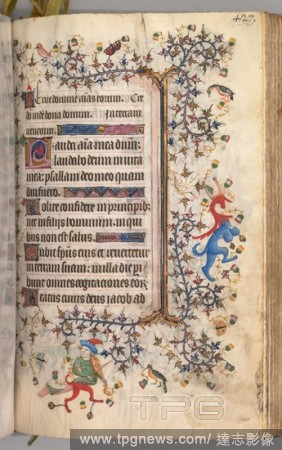 423
erue domine aīas eorum. Cre
do uidē bona domini.
uenerunt.
auda aīa mea dūm:
laudabo deum in uita
mea: psallam deo meo quam
diu fuero.
olite confidere in principib;
in filijs hominum: in qui
bus non est salus.
xibit sp̄us eius et reuertetur
in terram suam: in illa die pe
ribunt omnes cogitaciones eor.
eatus cuius deus iacob ad
TPG
www.tpgnews.com/達志影像